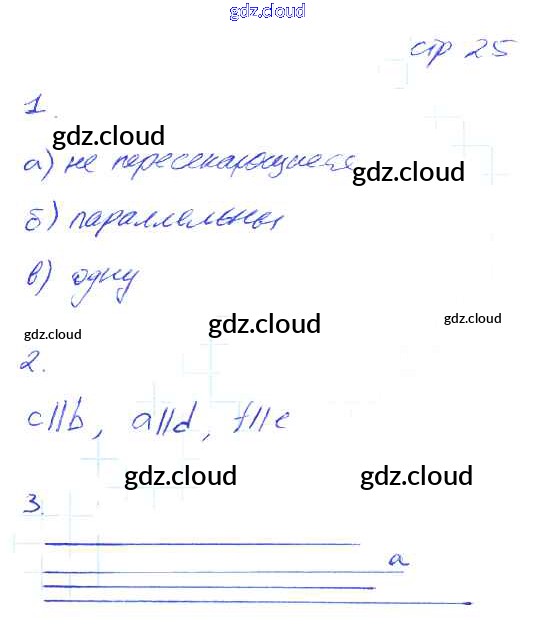 gdz.cloud
стр 25
1.
gdz.cloud
а) не пересекающиеся
gdz.cloud
б) параллельны
в) одну
gdz.cloud
gdz.cloud
gdz.cloud
2.
c||b, a||d, f||e
gdz.cloud
gdz.cloud
3.
a